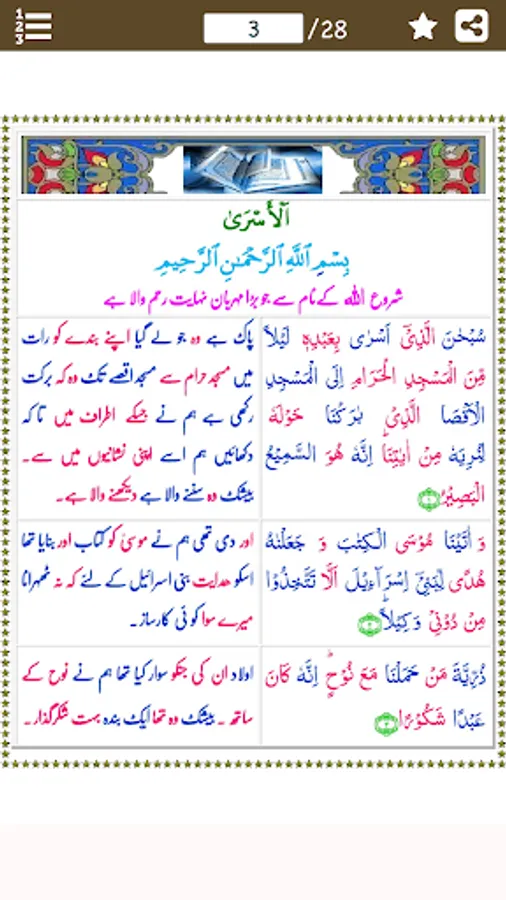 1
2
3
3
/28
اَلْأَسْرَىٰ
بِسْمِ ٱللَّهِ ٱلرَّحْمَـٰنِ ٱلرَّحِيمِ
شروع اللہ کے نام سے جو بڑا مہربان نہایت رحم والا ہے
سُبْحٰنَ الَّذِیْۤ اَسْرٰی بِعَبْدِهٖ لَیْلًا
مِّنَ الْمَسْجِدِ الْحَرَامِ اِلَی الْمَسْجِدِ
الْاَقْصَا الَّذِیْ بٰرَكْنَا حَوْلَهٗ
لِنُرِیَهٗ مِنْ اٰیٰتِنَا اِنَّهٗ هُوَ السَّمِیْعُ
الْبَصِیْرُ ۱
پاک ہے وہ جو لے گیا اپنے بندے کو رات
میں مسجد حرام سے مسجد اقصے تک وہ کہ برکت
رکھی ہے ہم نے جسکے اطراف میں تا کہ
دکھائیں ہم اسے اپنی نشانیوں میں سے۔
بیشک وہ سننے والا ہے دیکھنے والا ہے۔
وَ اٰتَیْنَا مُوْسَی الْكِتٰبَ وَ جَعَلْنٰهُ
هُدًی لِّبَنِیْۤ اِسْرَآءِیْلَ اَلَّا تَتَّخِذُوْا
مِنْ دُوْنِیْ وَكِیْلًا ۲
اور دی تھی ہم نے موسیٰ کو کتاب اور بنایا تھا
اسکو ہدایت بنی اسرائیل کے لئے کہ نہ ٹھہرانا
میرے سوا کوئی کارساز۔
ذُرِّیَّةَ مَنْ حَمَلْنَا مَعَ نُوْحٍؕ اِنَّهٗ كَانَ
عَبْدًا شَكُوْرًا ۳
اولاد ان کی جنکو سوار کیا تھا ہم نے نوح کے
ساتھ ۔ بیشک وہ تھا ایک بندہ بہت شکرگذار۔